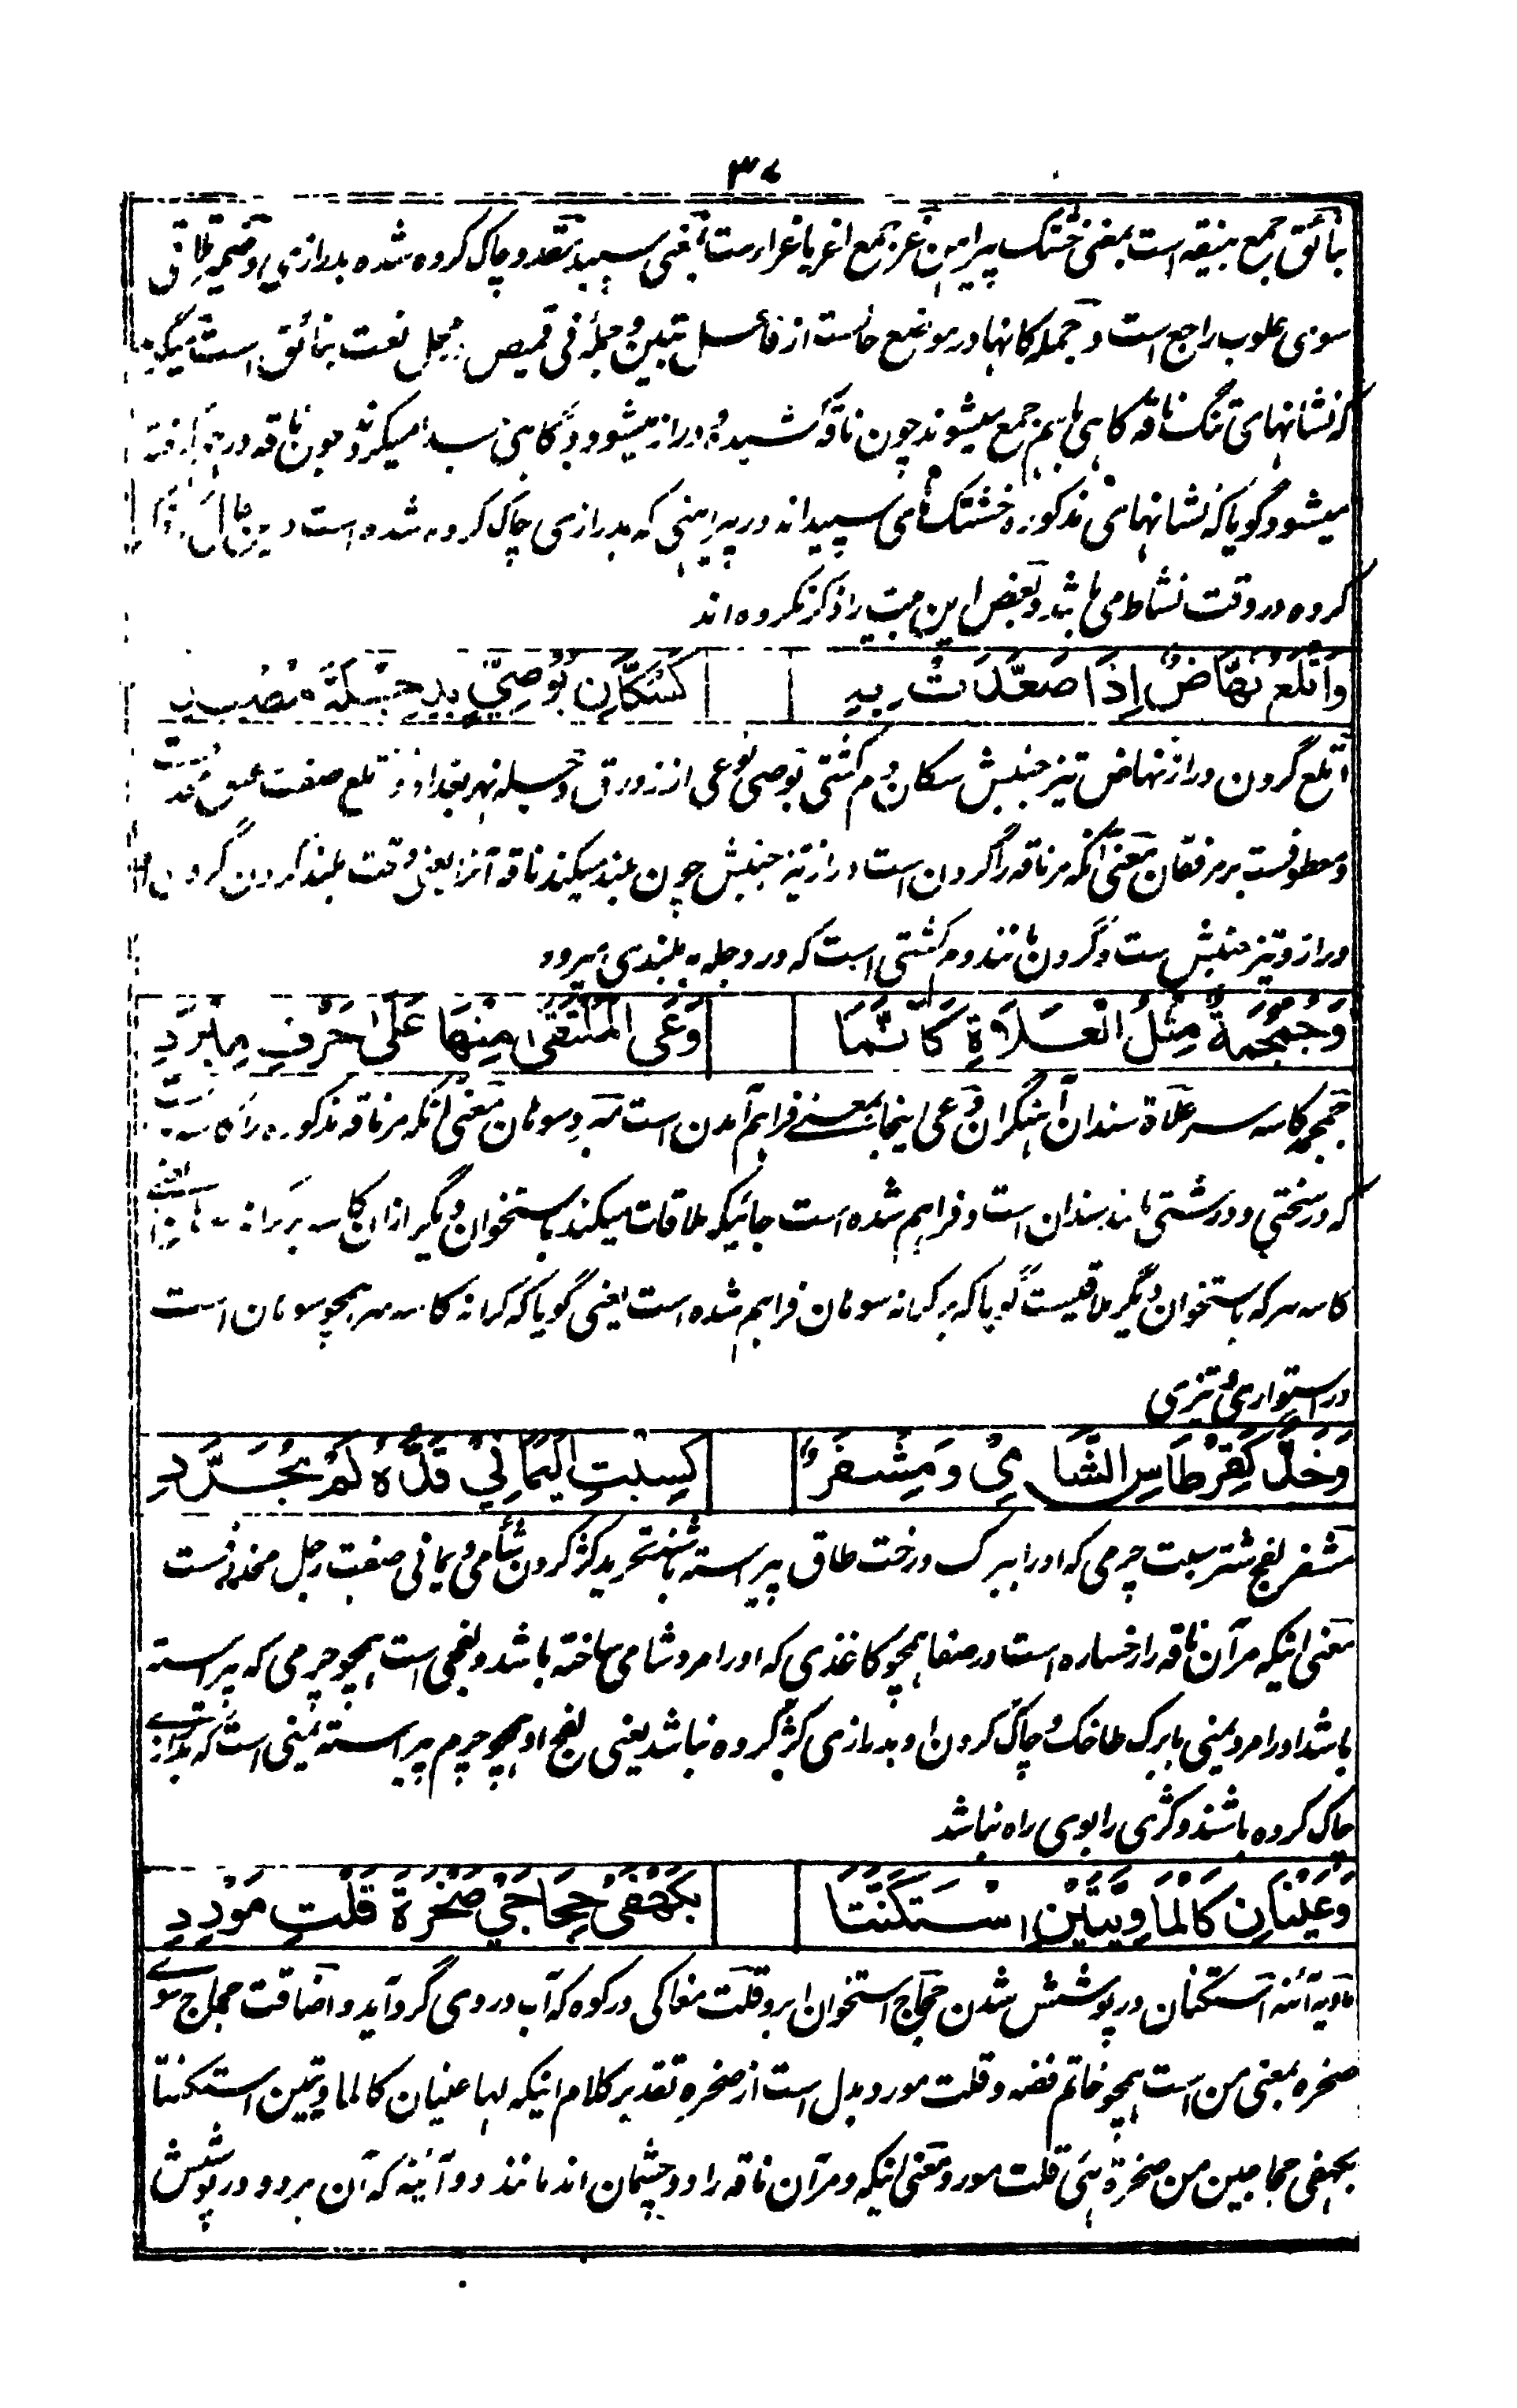 ٣٧
بنائق جمع بنیقه است بمعنی خشتک پیراهن غر جمع اغر یا غراء است بمعنی سپید مقدد چاک کرده شده بدرازی و ضمیر تلاقی
سوی علوب راجع است و جمله کانها در موضع حالست از فاعل تبین و جمله فی قمیص نعت بنائق است
که نشانهای تنگ ناقه گاهی باهم جمع میشوند چون ناقه کشیده و دراز میشود و گاهی جدا میگردد چون ناقه
میشود گویا که نشانهای مذکوره خشتک های سپیداند در پیراهنی که بدرازی چاک کرده شده است
کرده در وقت نشاط می باشد و بعض این بیت را ذکر نکرده اند
وَاَتْلَعُ نَهَّاضٌ اِذَا صَعَّدَتْ بِهِ كَسُكَّانِ بُوْصِيٍّ بِدِجْلَةَ مُصْعِدِ
اتلع گردن دراز نهاض تیز جنبش سکان دم کشتی بوصی نوعی از زورق دجله نهر بغداد و اتلع صفت عنق
و معطوفست بر مرفقان معنی آنکه مر ناقه را گردن است دراز تیز جنبش چون بلند میکند ناقه آنرا یعنی وقت بلند کردن گردن
دراز و تیز جنبش ست و گردن مانند دم کشتی است که در دجله به بلندی میرود
وَجُمْجُمَةٌ مِثْلُ الْعَلَاةِ كَاَنَّمَا وَعَى الْمُلْتَقٰى مِنْهَا عَلٰى حَرْفِ مِبْرَدِ
جمجمه کاسه سر علاة سندان آهنگران وعی اینجا بمعنے فراهم آمدن است مبرد سوهان معنی آنکه مر ناقه مذکوره را کاسه
که در سختی و درشتی مانند سندان است و فراهم شده است جائیکه ملاقات میکند باستخوان دیگر ازان کاسه بر کرانه
کاسه سر که باستخوان دیگر ملاقیست گویا که بر کرانه سوهان فراهم شده است یعنی گویا که کرانه کاسه سر همچو سوهان است
در استواری و تیزی
وَخَدٌّ كَقِرْطَاسِ الشَّامِيْ وَمِشْفَرٌ كَسِبْتِ الْيَمَانِيْ قَدُّهٗ لَمْ يُجَرَّدِ
مشفر لفج شتر سبت چرمی که اورا ببرگ درخت طاق پیراسته باشند تحرید کژ کردن شامی و یمانی صفت رجل محذوفست
معنی اینکه مر آن ناقه را رخساره است در صفا همچو کاغذی که اورا مرد شامی ساخته باشد و لفجی است همچو چرمی که پیراسته
باشد اورا مرد یمنی بابرگ طاق و چاک کردن او بدرازی کژ کرده نباشد یعنی لفج او همچو چرم پیراسته یمنی است که بدرازی
چاک کرده باشند و کژی را بوی راه نباشد
وَعَيْنَانِ كَالْمَاوِيَّتَيْنِ اسْتَكَنَّتَا بِكَهْفَيْ حِجَاجَيْ صَخْرَةٍ قَلْتِ مَوْرِدِ
ماویه آئنه استکنان در پوشش شدن حجاج استخوان ابرو قلت مغاکی در کوه که آب در وی گرد آید و اضافت حجاج سوے
صخره بمعنی من است همچو خاتم فضه و قلت مورد بدل است از صخره تقدیر کلام اینکه لها عینان کالماویتین استکنتا
بکهفی حجاجین من صخرة هی قلت مورد و معنی اینکه و مر آن ناقه را دو چشمان اند مانند دو آئینه که آن هر دو در پوشش